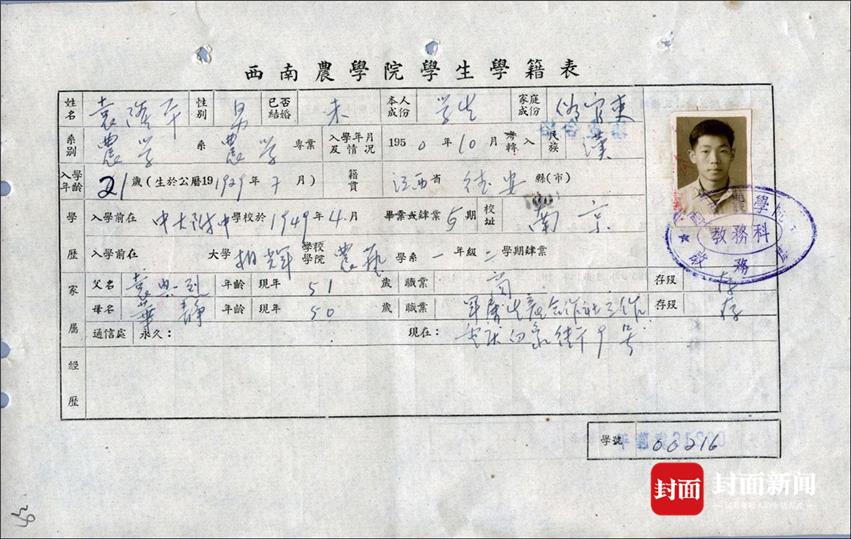 西南農學院學生學籍表
姓名 袁隆平 性別 男 已否結婚 未 本人成份 学生 家庭成份
系別 農学 系 農学 專業 入學年月及情况 1950年10月 考轉入 民族 漢
入學年齡 21歲(生於公曆19 1929年7月) 籍貫 江西省 德安 縣(市)
學 入學前在 中大附中 學校於 1949年4月 畢業或肄業 5期 校址 南京
歷 入學前在 大學 相輝 學校學院 農藝 學系 一 年級 二 學期肄業
家 父名 袁興烈 年齡 現年 51 歲 職業 商 存歿 存
母名 華靜 年齡 現年 50 歲 職業 存歿 存
屬 通信處 永久: 現在: 重庆 白象街 9号
經歷
學號 00216
教務科
封面 封面新闻